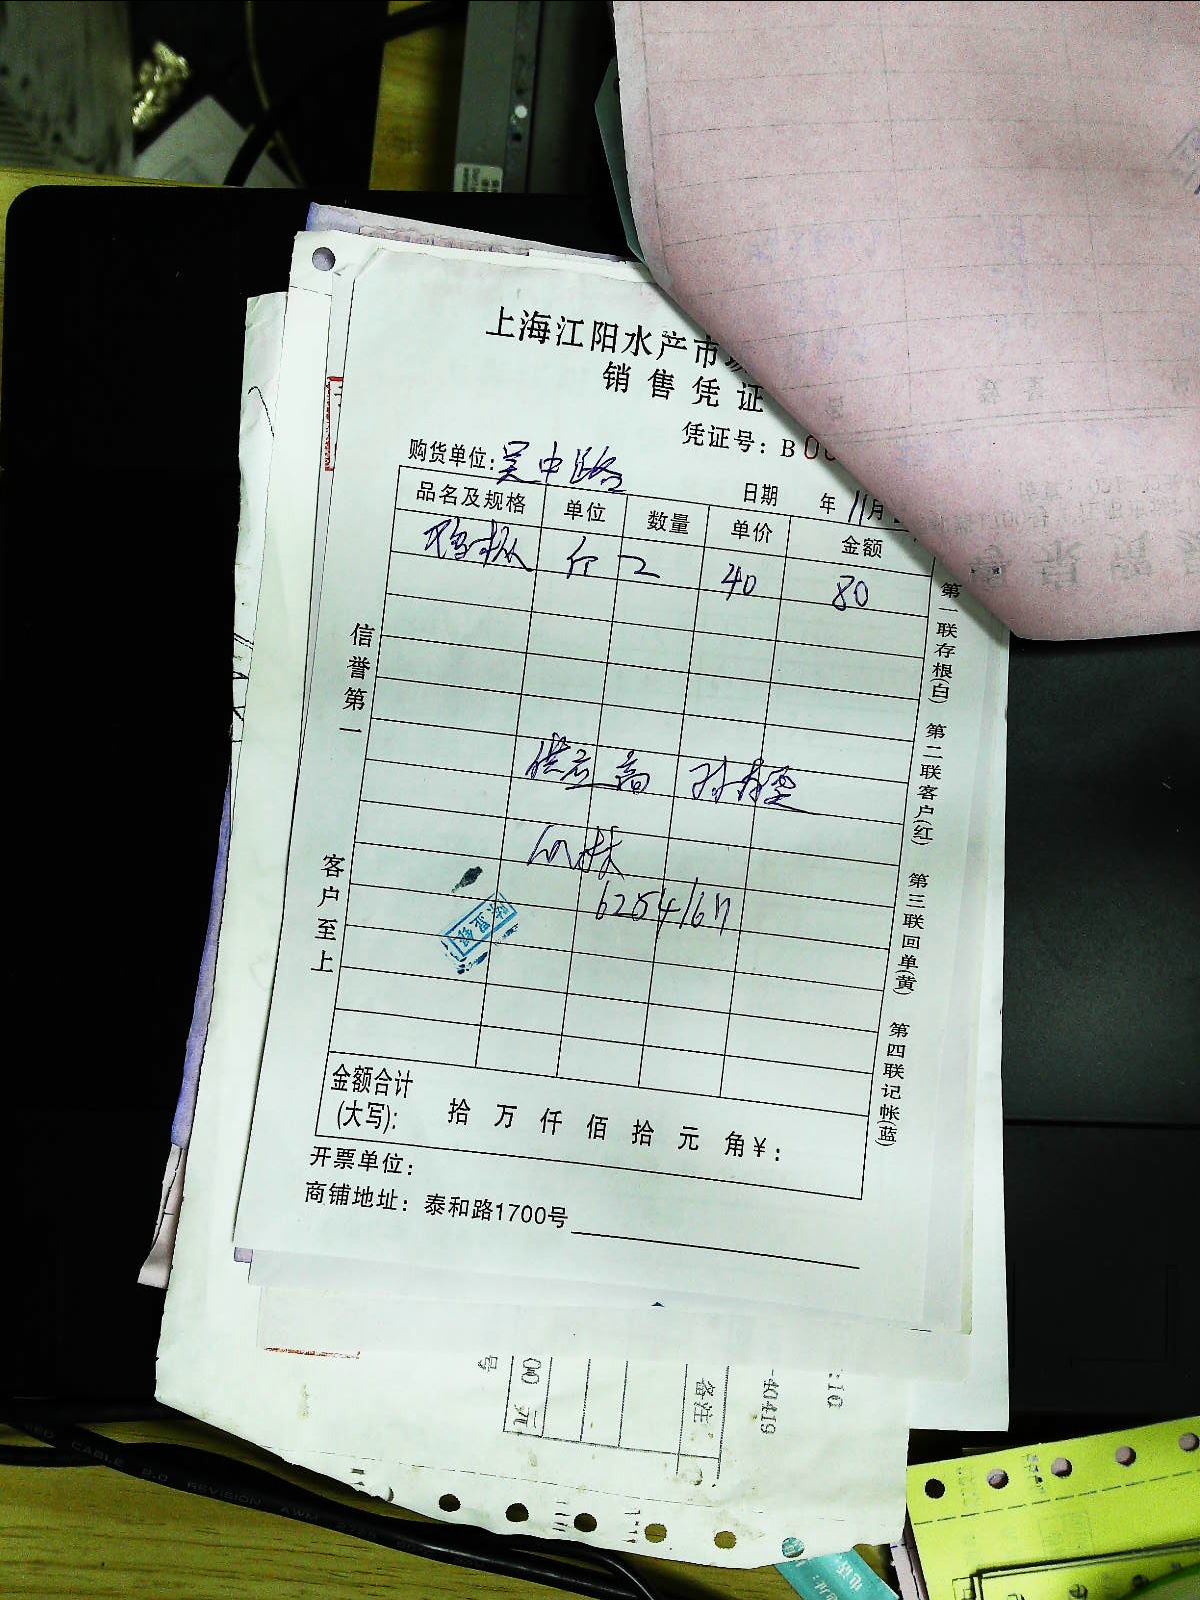 上海江阳水产市
销售凭证
凭证号：B00
购货单位：吴中路
日期 年 11月
品名及规格 单位 数量 单价 金额
鸡枞 斤 2 40 80
信誉第一
客户至上
供应商
62541671
金额合计
(大写)： 拾 万 仟 佰 拾 元 角￥：
开票单位：
商铺地址：泰和路1700号
第一联存根(白) 第二联客户(红) 第三联回单(黄) 第四联记帐(蓝)
备注：
-40419
:10
00 元
号
CABLE 2.0 REVISION AWM